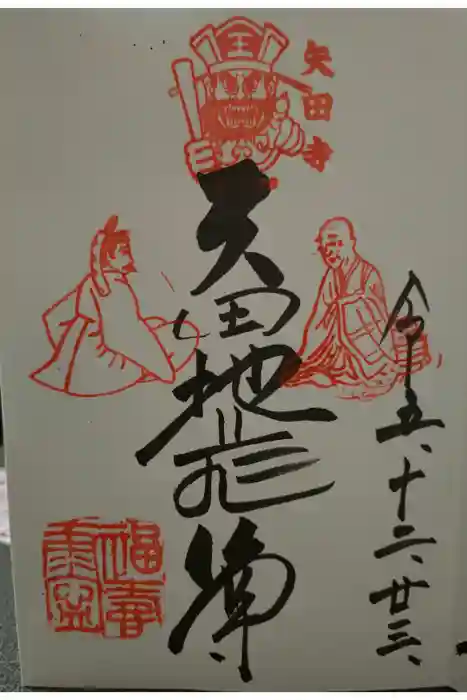 王
矢田寺
矢田地蔵尊
令五、十二、廿三、